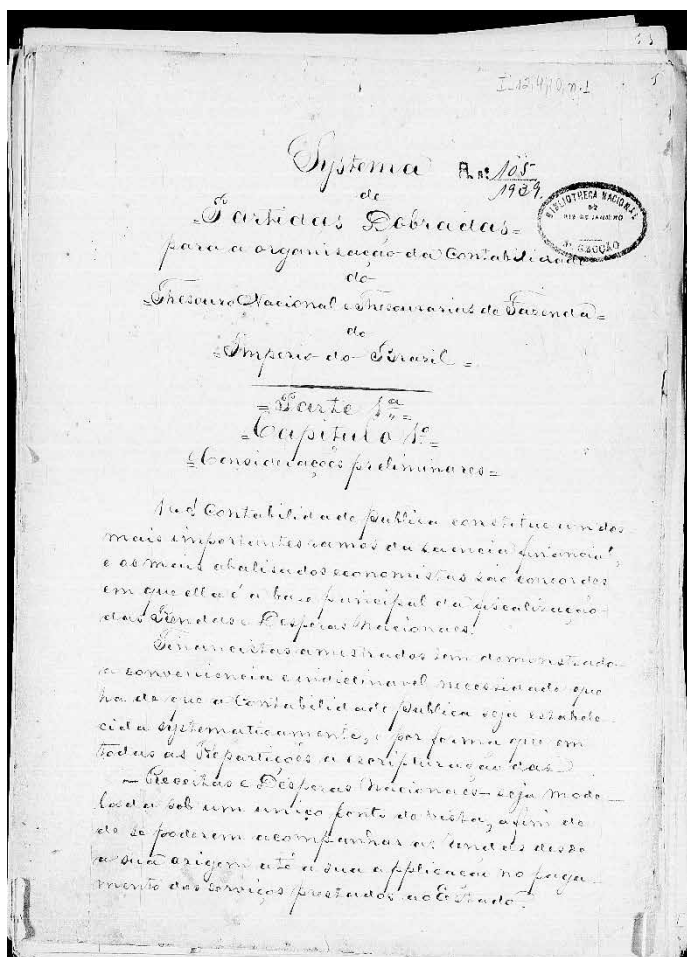 I-12,4,10, n.1
Systema
R. nº 105
1939.
de
=Partidas Dobradas=
BIBLIOTHECA NACIONAL
DO
RIO DE JANEIRO
SECÇÃO
para a organização da Contabilidade
do
=Thesouro Nacional e Thesourarias de Fazenda=
do
=Imperio do Brasil=
=Parte 1ª=
=Capitulo 1º=
=Considerações preliminares=
A Contabilidade publica constitue um dos
mais importantes ramos da sciencia financial,
e os mais abalisados economistas são concordes
em que ella é a base principal da fiscalização
das Rendas e Despesas Nacionaes.
Financistas amestrados tem demonstrado
a conveniencia e indeclinavel necessidade que
ha de que a Contabilidade publica seja estabele
cida systematicamente, e por forma que em
todas as Repartições a escripturação das
- Receitas e Despesas Nacionaes - seja mode-
lada sob um unico ponto de vista, afim de
de se poderem acompanhar as rendas desde
a sua origem até a sua applicação no paga-
mento dos serviços prestados ao Estado.